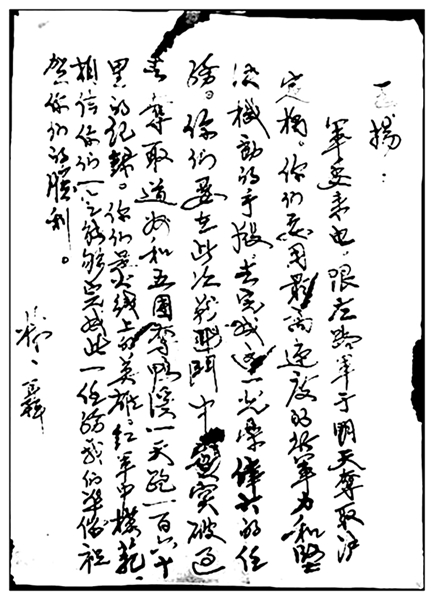 王揚：
軍委来电，限左路軍于明天奪取泸
定橋。你们要用最高速度的行軍力和堅
决機動的手段，去完成这一光榮偉大的任
務。你们要在此次戰鬥中突破过
去奪取道州和五團奪鴨溪一天跑一百六十
里的記録。你们是火线上的英雄，红軍中模範，
相信你们一定能够完成此一任務我们準備祝
贺你们的勝利。
林、聶